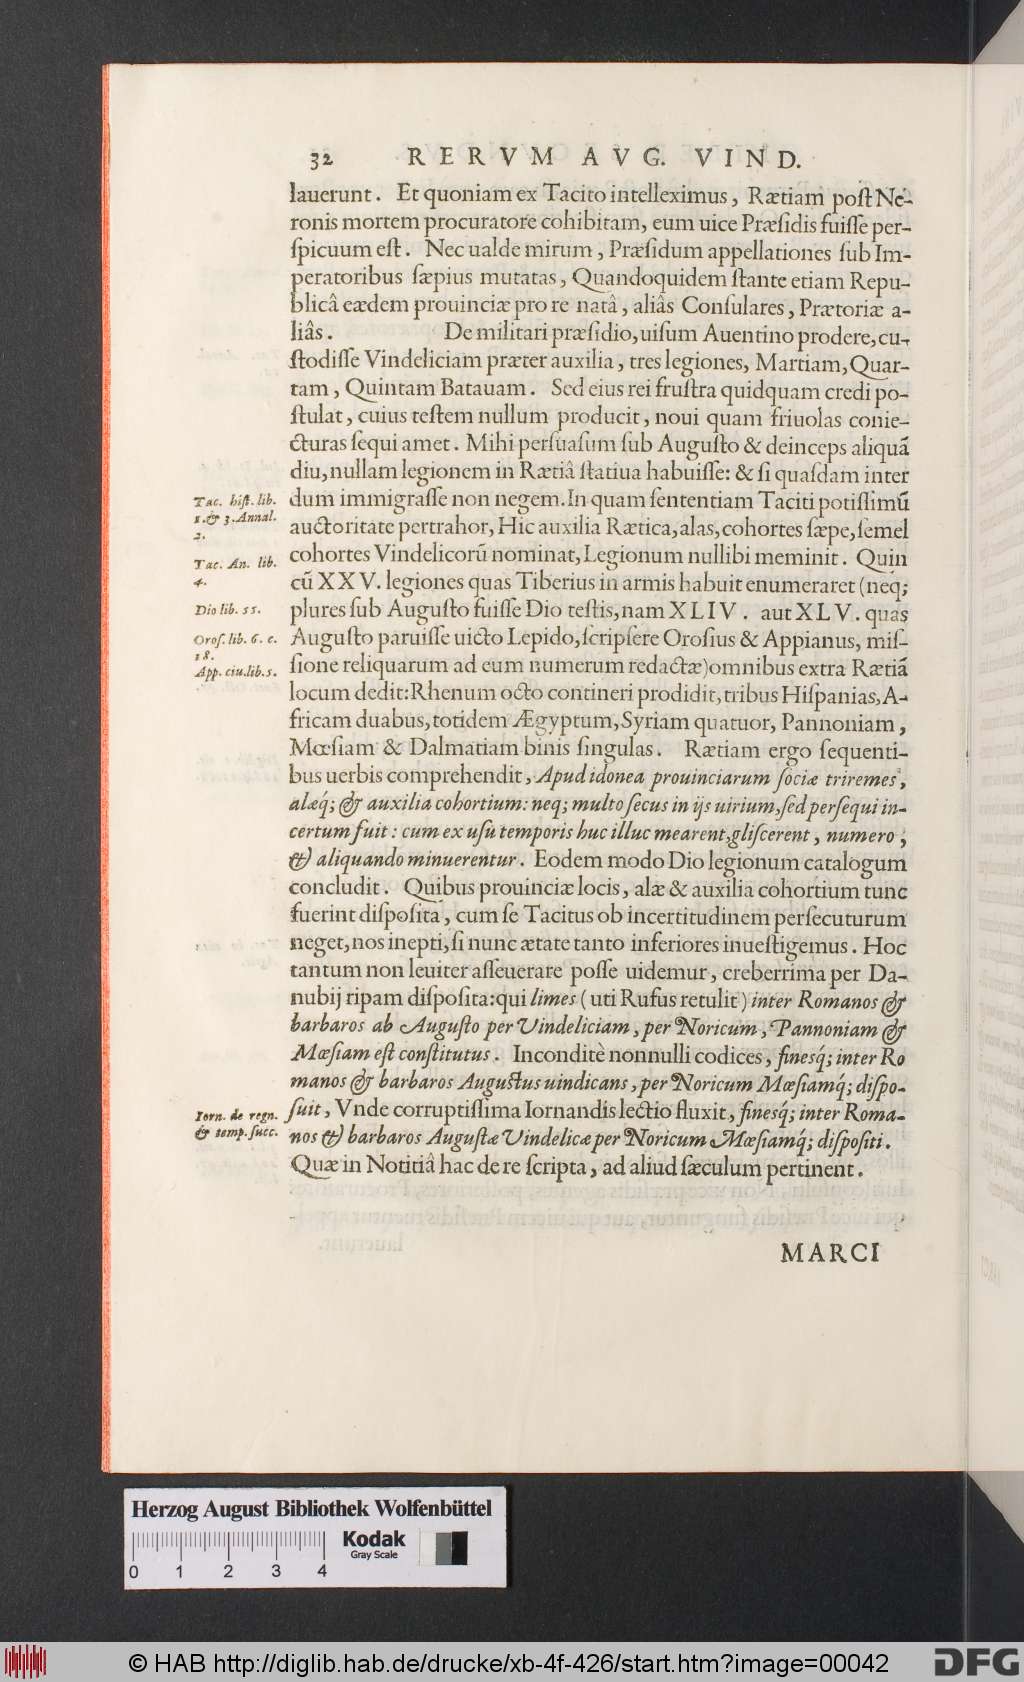 32 RERVM AVG. VIND.
lauerunt. Et quoniam ex Tacito intelleximus, Rætiam poſt Ne-
ronis mortem procuratore cohibitam, eum uice Præſidis fuiſſe per-
ſpicuum eſt. Nec ualde mirum, Præſidum appellationes ſub Im-
peratoribus ſæpius mutatas, Quandoquidem ſtante etiam Repu-
blicâ eædem prouinciæ pro re natâ, aliâs Conſulares, Prætoriæ a-
liâs. De militari præſidio, uiſum Auentino prodere, cu-
ſtodiſſe Vindeliciam præter auxilia, tres legiones, Martiam, Quar-
tam, Quintam Batauam. Sed eius rei fruſtra quidquam credi po-
ſtulat, cuius teſtem nullum producit, noui quam friuolas conie-
cturas ſequi amet. Mihi perſuaſum ſub Auguſto & deinceps aliquã
diu, nullam legionem in Rætiâ ſtatiua habuiſſe: & ſi quaſdam inter
Tac. hiſt. lib. dum immigraſſe non negem. In quam ſententiam Taciti potiſſimũ
1. & 3. Annal. auctoritate pertrahor, Hic auxilia Rætica, alas, cohortes ſæpe, ſemel
2.
Tac. An. lib. cohortes Vindelicorũ nominat, Legionum nullibi meminit. Quin
4. cũ XXV. legiones quas Tiberius in armis habuit enumeraret (neq;
Dio lib. 55. plures ſub Auguſto fuiſſe Dio teſtis, nam XLIV. aut XLV. quas
Oroſ. lib. 6. c. Auguſto paruiſſe uicto Lepido, ſcripſere Oroſius & Appianus, miſ-
18.
App. ciu. lib. 5. ſione reliquarum ad eum numerum redactæ) omnibus extra Rætiã
locum dedit: Rhenum octo contineri prodidit, tribus Hiſpanias, A-
fricam duabus, totidem Ægyptum, Syriam quatuor, Pannoniam,
Mœſiam & Dalmatiam binis ſingulas. Rætiam ergo ſequenti-
bus uerbis comprehendit, Apud idonea prouinciarum ſociæ triremes,
alæq́; & auxilia cohortium: neq; multo ſecus in ijs uirium, ſed perſequi in-
certum fuit: cum ex uſu temporis huc illuc mearent, gliſcerent, numero,
& aliquando minuerentur. Eodem modo Dio legionum catalogum
concludit. Quibus prouinciæ locis, alæ & auxilia cohortium tunc
fuerint diſpoſita, cum ſe Tacitus ob incertitudinem perſecuturum
neget, nos inepti, ſi nunc ætate tanto inferiores inueſtigemus. Hoc
tantum non leuiter aſſeuerare poſſe uidemur, creberrima per Da-
nubij ripam diſpoſita: qui limes (uti Rufus retulit) inter Romanos &
barbaros ab Auguſto per Vindeliciam, per Noricum, Pannoniam &
Mœſiam eſt conſtitutus. Inconditè nonnulli codices, fineſq́; inter Ro
manos & barbaros Auguſtus uindicans, per Noricum Mœſiamq́; diſpo-
Iorn. de regn. ſuit, Vnde corruptiſſima Iornandis lectio fluxit, fineſq́; inter Roma-
& temp. ſucc. nos & barbaros Auguſtæ Vindelicæ per Noricum Mœſiamq́; diſpoſiti.
Quæ in Notitiâ hac de re ſcripta, ad aliud ſæculum pertinent.
MARCI
Herzog August Bibliothek Wolfenbüttel
Kodak
Gray Scale
0 1 2 3 4
© HAB http://diglib.hab.de/drucke/xb-4f-426/start.htm?image=00042
DFG